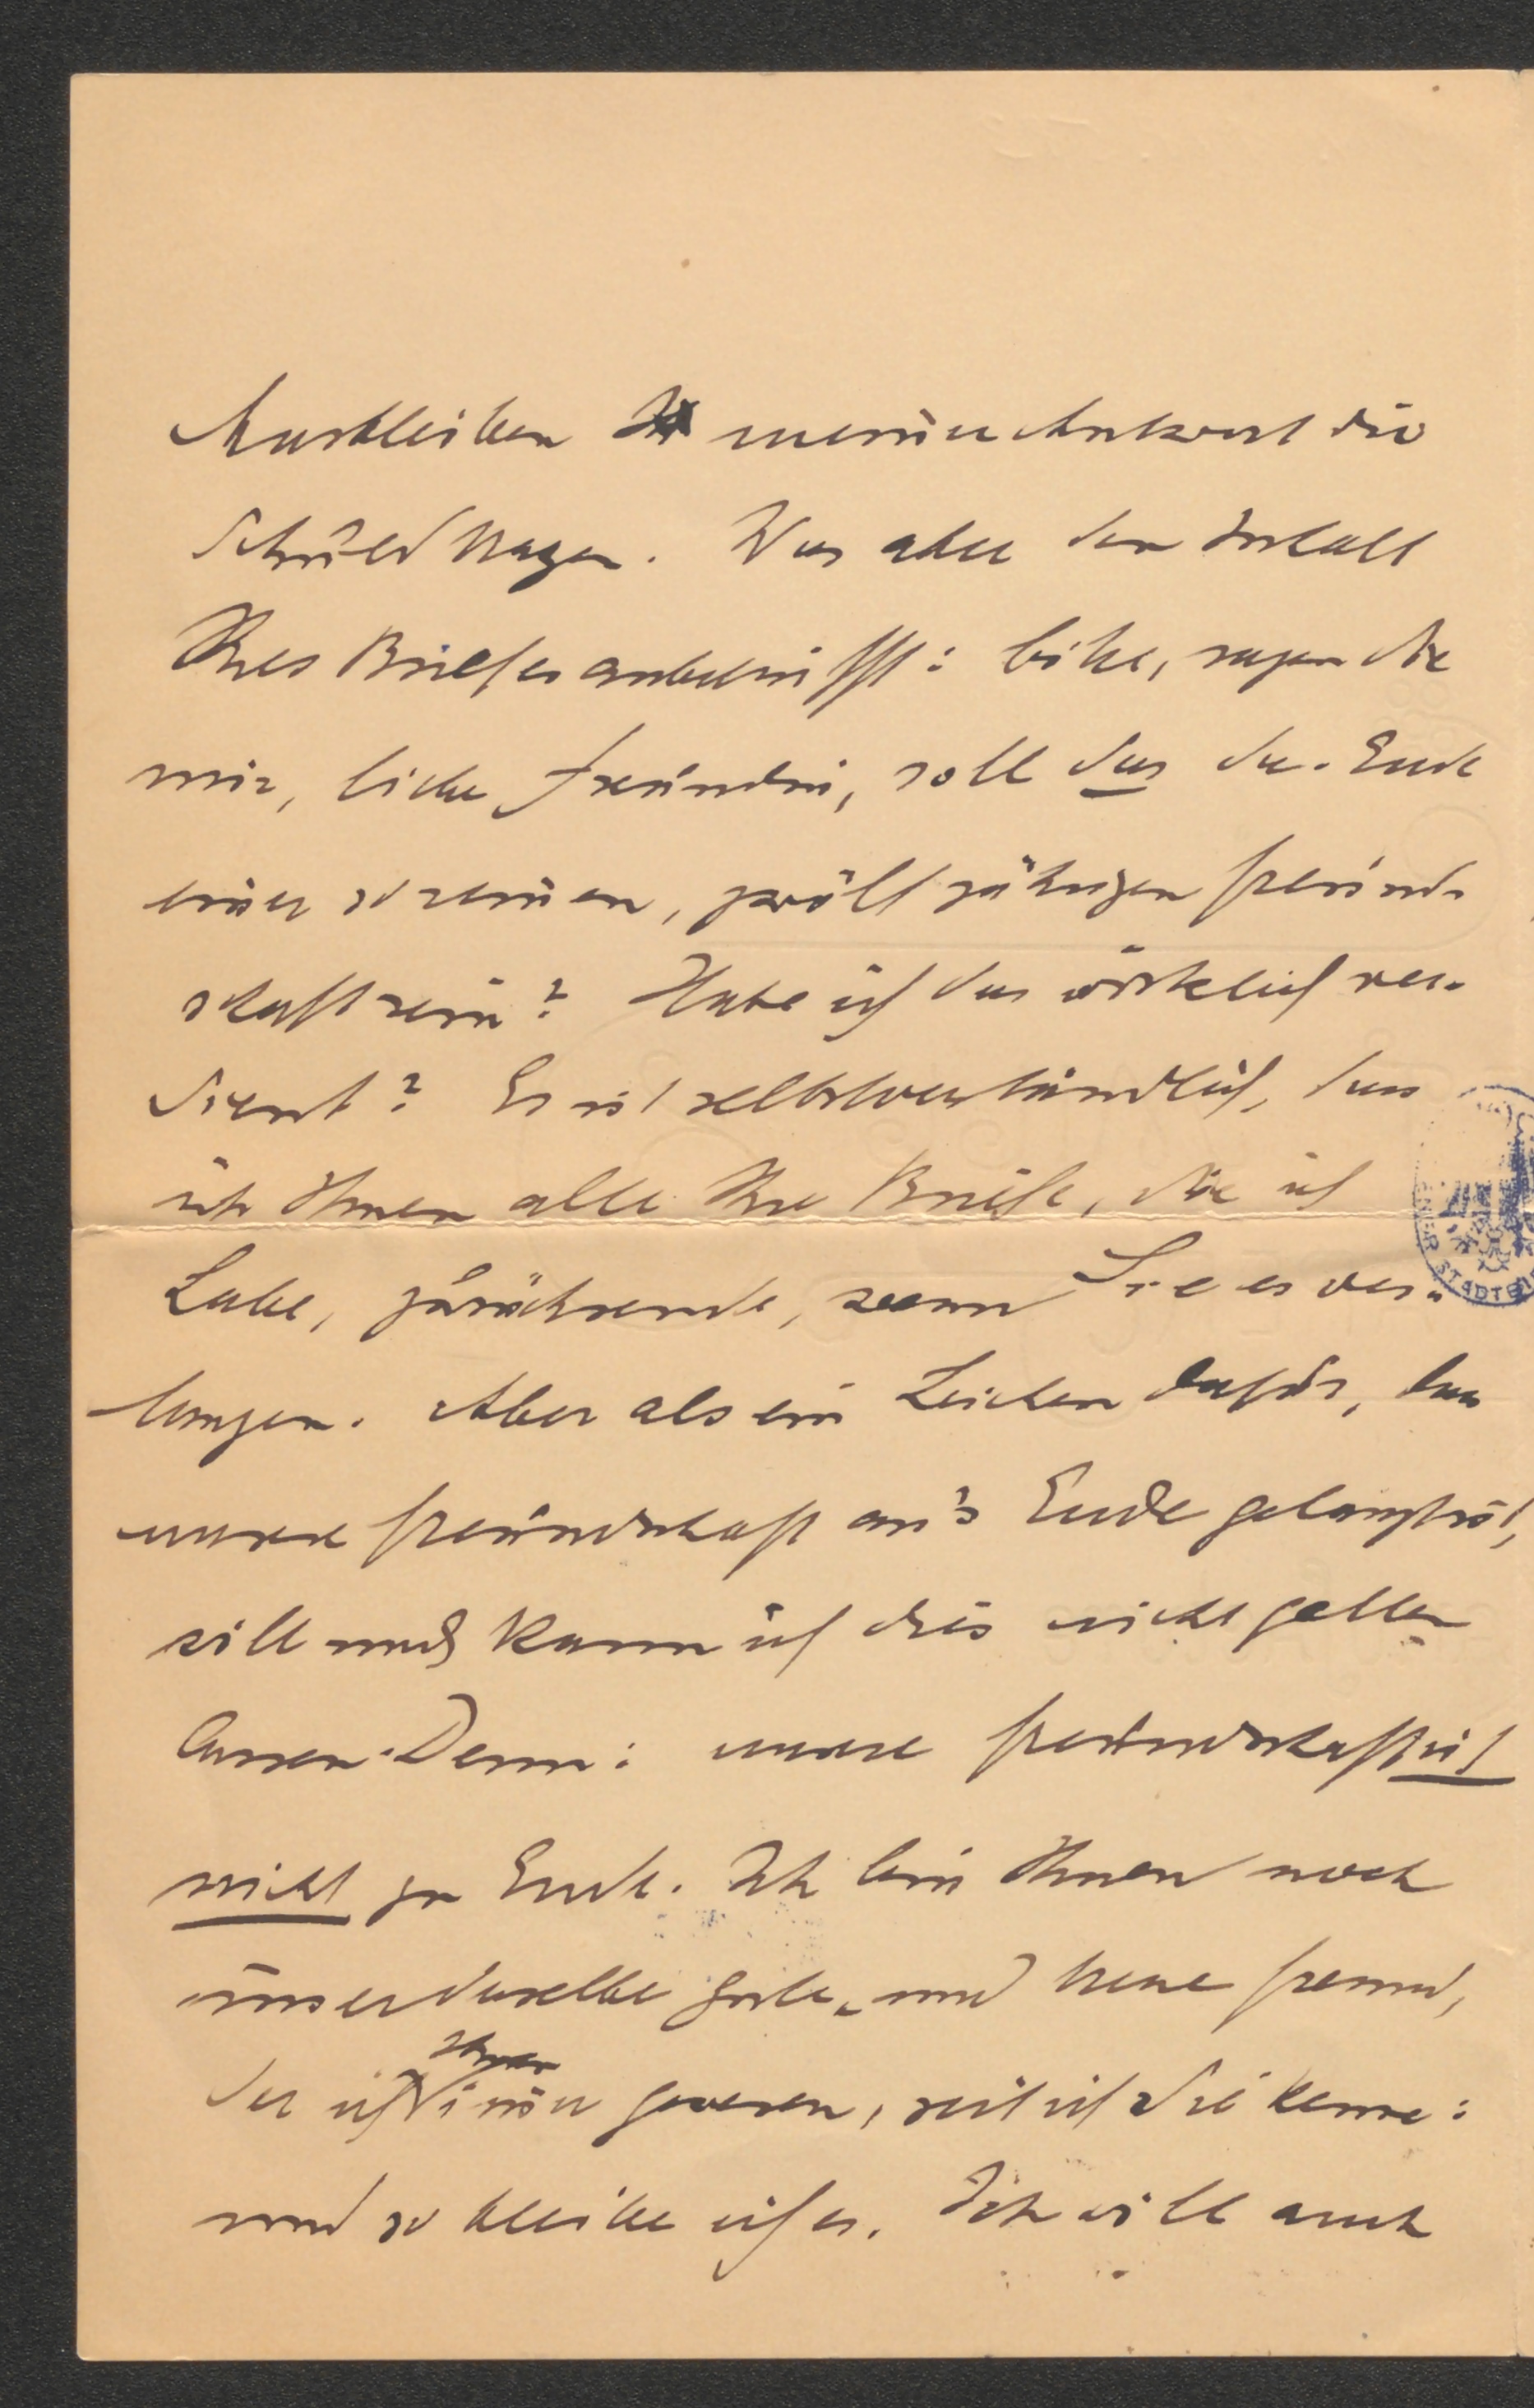 Ausbleiben meiner Antwort die
Schuld tragen. Was aber den Inhalt
Ihres Briefes anbetrifft: bitte, sagen Sie
mir, liebe Freundin, soll das das Ende
einer so reinen, zwölfjährigen Freund-
schaft sein? Habe ich das wirklich ver-
dient? Es ist selbstverständlich, dass
ich Ihnen alle Ihre Briefe, die ich
habe, zurücksende, wenn Sie es ver-
langen. Aber als ein Zeichen dafür, dass
unsere Freundschaft an's Ende gelangt ist,
will und kann ich dies nicht gelten
lassen. Denn: unsere Freundschaft ist
nicht zu Ende. Ich bin Ihnen noch
immer derselbe gute und treue Freund,
der ich Ihnen immer gewesen, seit ich Sie kenne:
und so bleibe ich es. Ich will auch
STADTBI